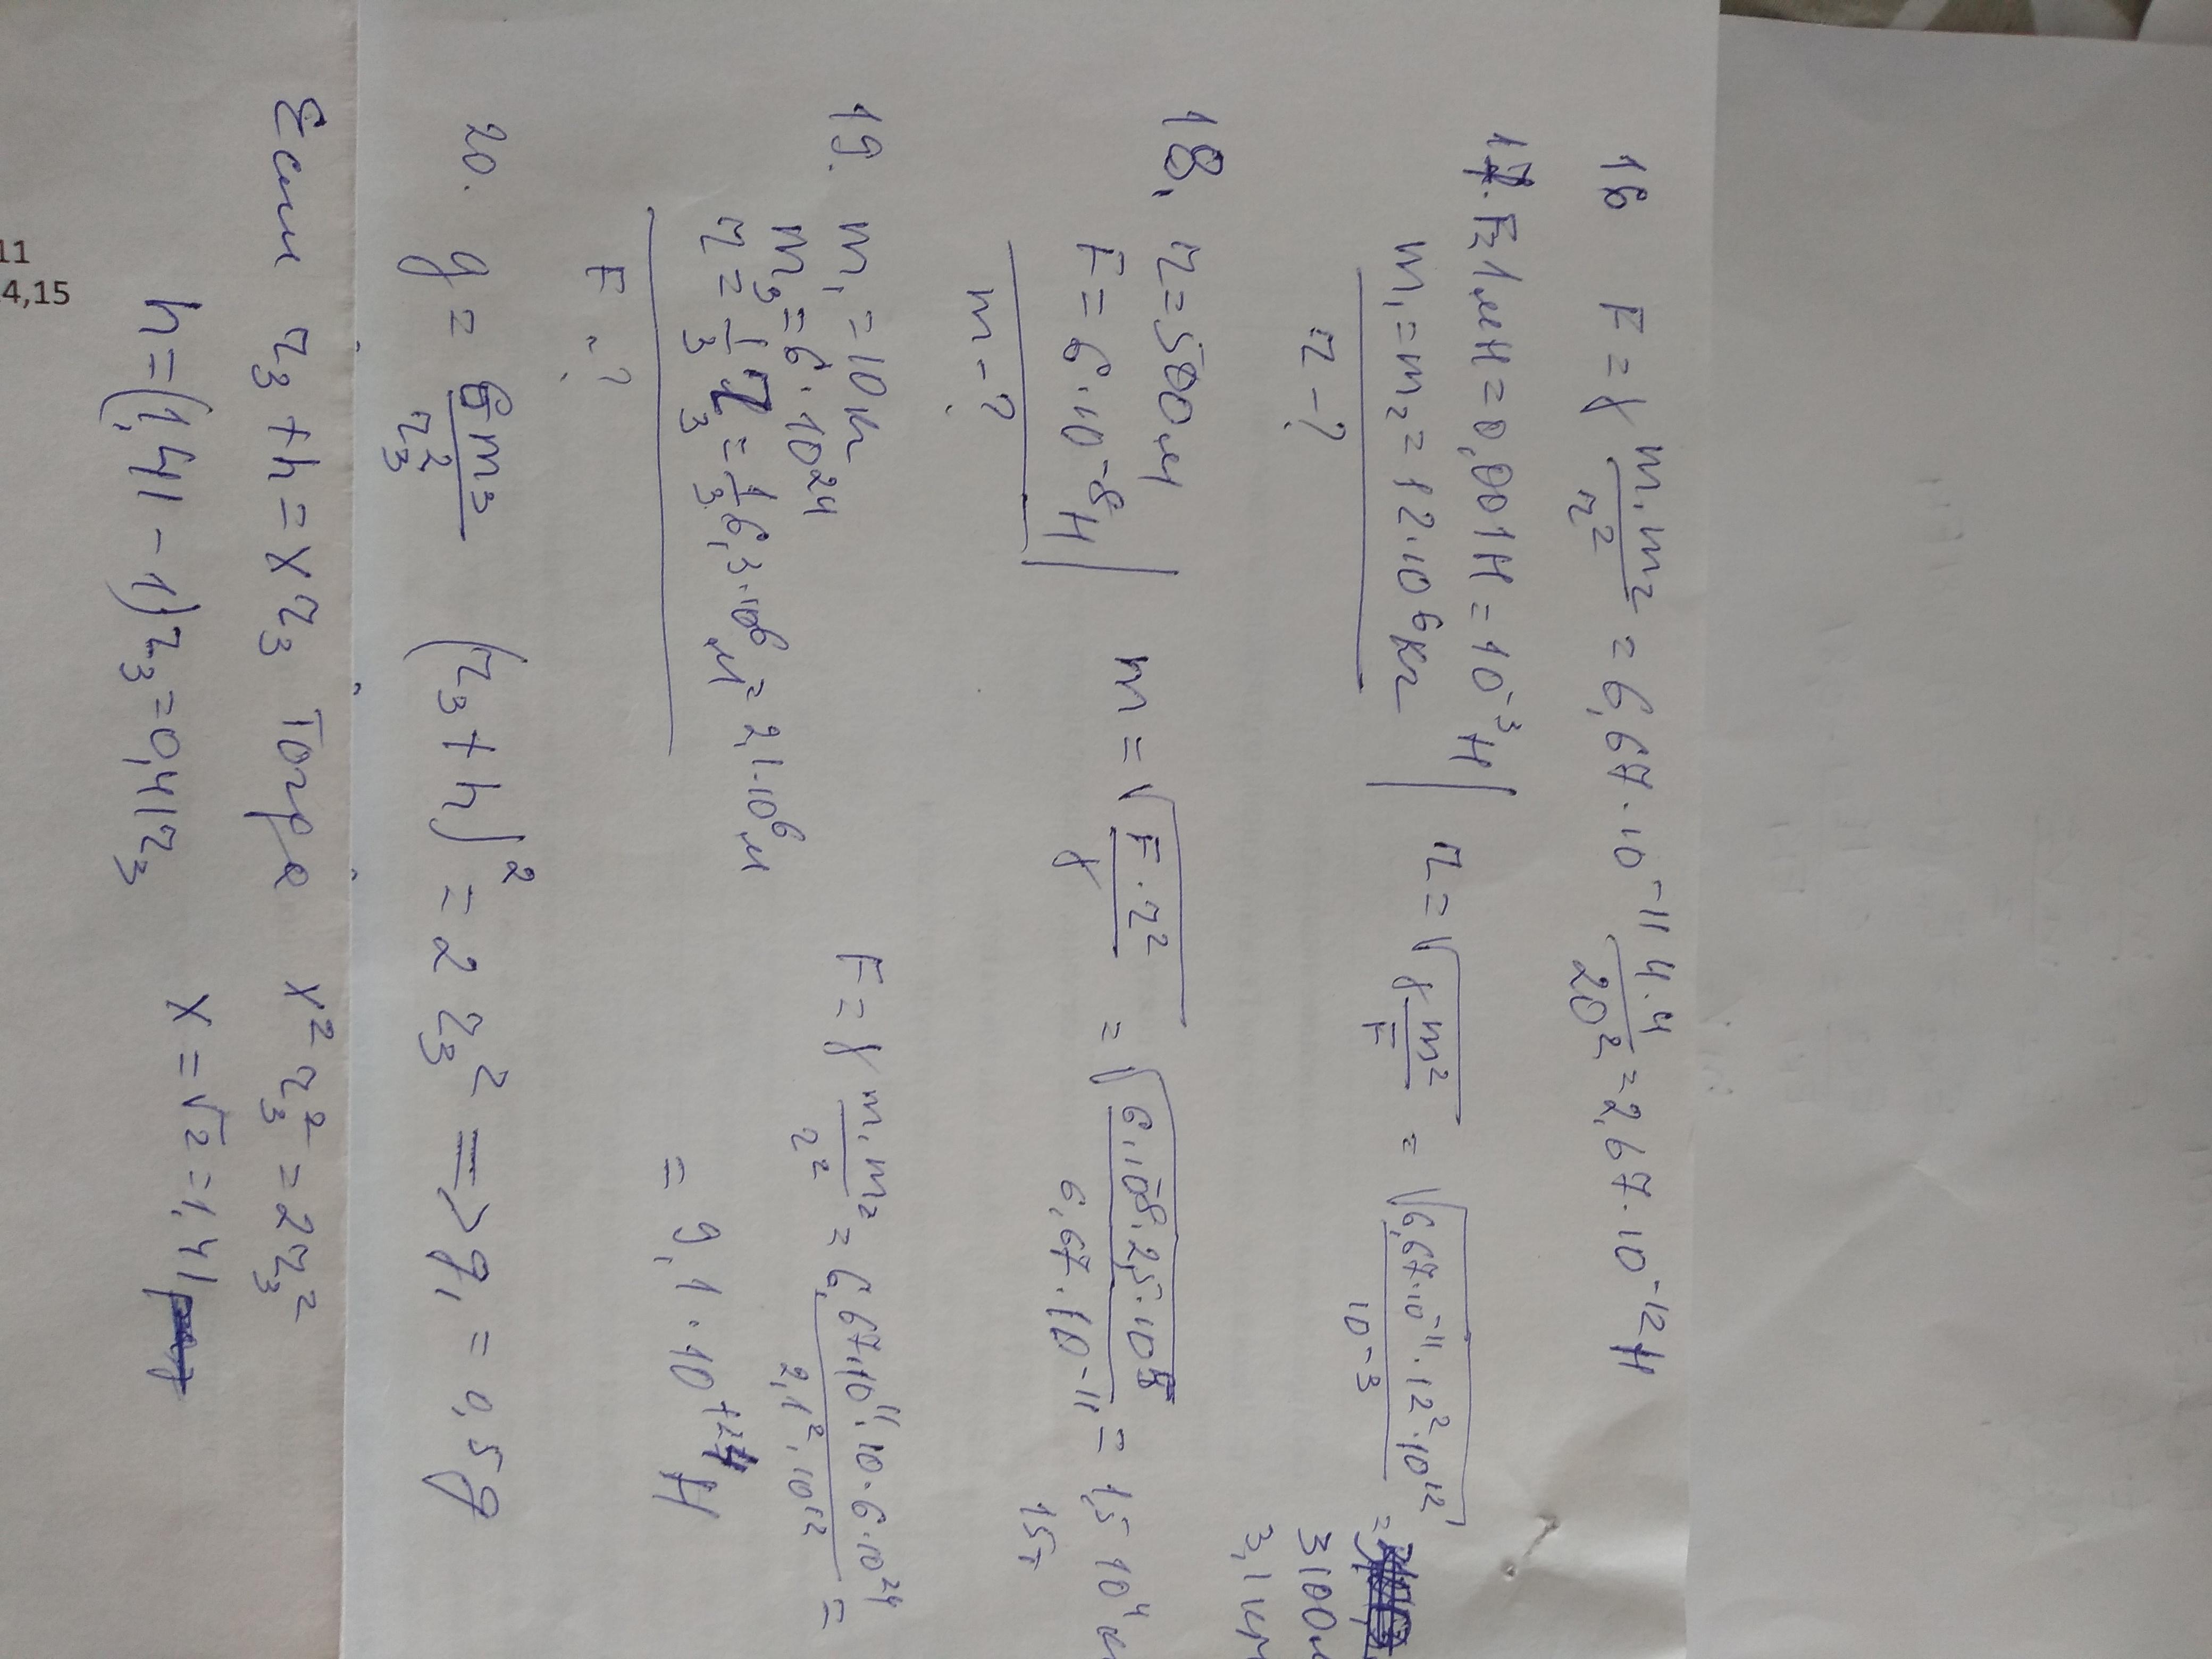 16 F = γ m₁m₂/r² = 6,67·10⁻¹¹ 4·4/20² = 2,67·10⁻¹²Н
17. F=1мН = 0,001Н = 10⁻³Н
m₁ = m₂ = 12·10⁶кг
r - ?
r = √(γm²/F) = √(6,67·10⁻¹¹·12²·10¹²/10⁻³) =
3100м
3,1 км
18. r = 500м
F = 6·10⁻⁸Н
m - ?
m = √(F·r²/γ) = √(6·10⁸·25·10⁴/6,67·10⁻¹¹) = 1,5 10⁴ кг
15т
19. m₁ = 10кг
m₃ = 6·10²⁴
r = 1/3 r₃ = 1/3 6,3·10⁶м = 2,1·10⁶м
F - ?
F = γ m₁m₂/r² = 6,67·10¹¹·10·6·10²⁴/2,1²·10¹² =
= 9,1·10⁺²Н
20. g = Gm₃/r₃² (r₃ + h)² = 2 r₃² => g₁ = 0,5g
Если r₃ + h = x r₃ Тогда x² r₃² = 2r₃²
h = (1,41 - 1)r₃ = 0,41r₃ x = √2 = 1,41
11
4,15